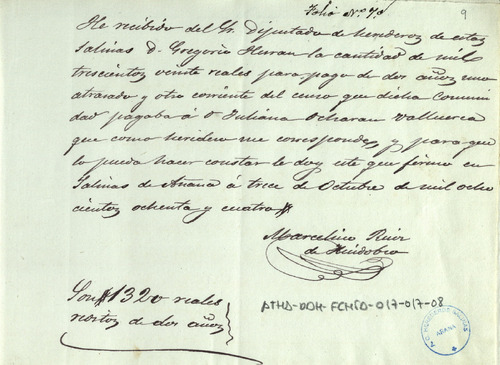 Folio Nº 7º
9
He recibido del Sr. Diputado de herederos de estas
Salinas D. Gregorio Huran la cantidad de mil
trescientos veinte reales para pago de dos años uno
atrasado y otro corriente del censo que dicha Comuni
dad pagaba á Dª Juliana Ocharan Valluerca
que como heridero me corresponde, y para que
lo pueda hacer constar le doy este que firmo en
Salinas de Anana á trece de Octubre de mil ocho
cientos ochenta y cuatro
Marcelino Ruiz
de Huidobro
Son 1320 reales
de dos años
ATHA-DDH-FCHSD-017-017-08
ANANA